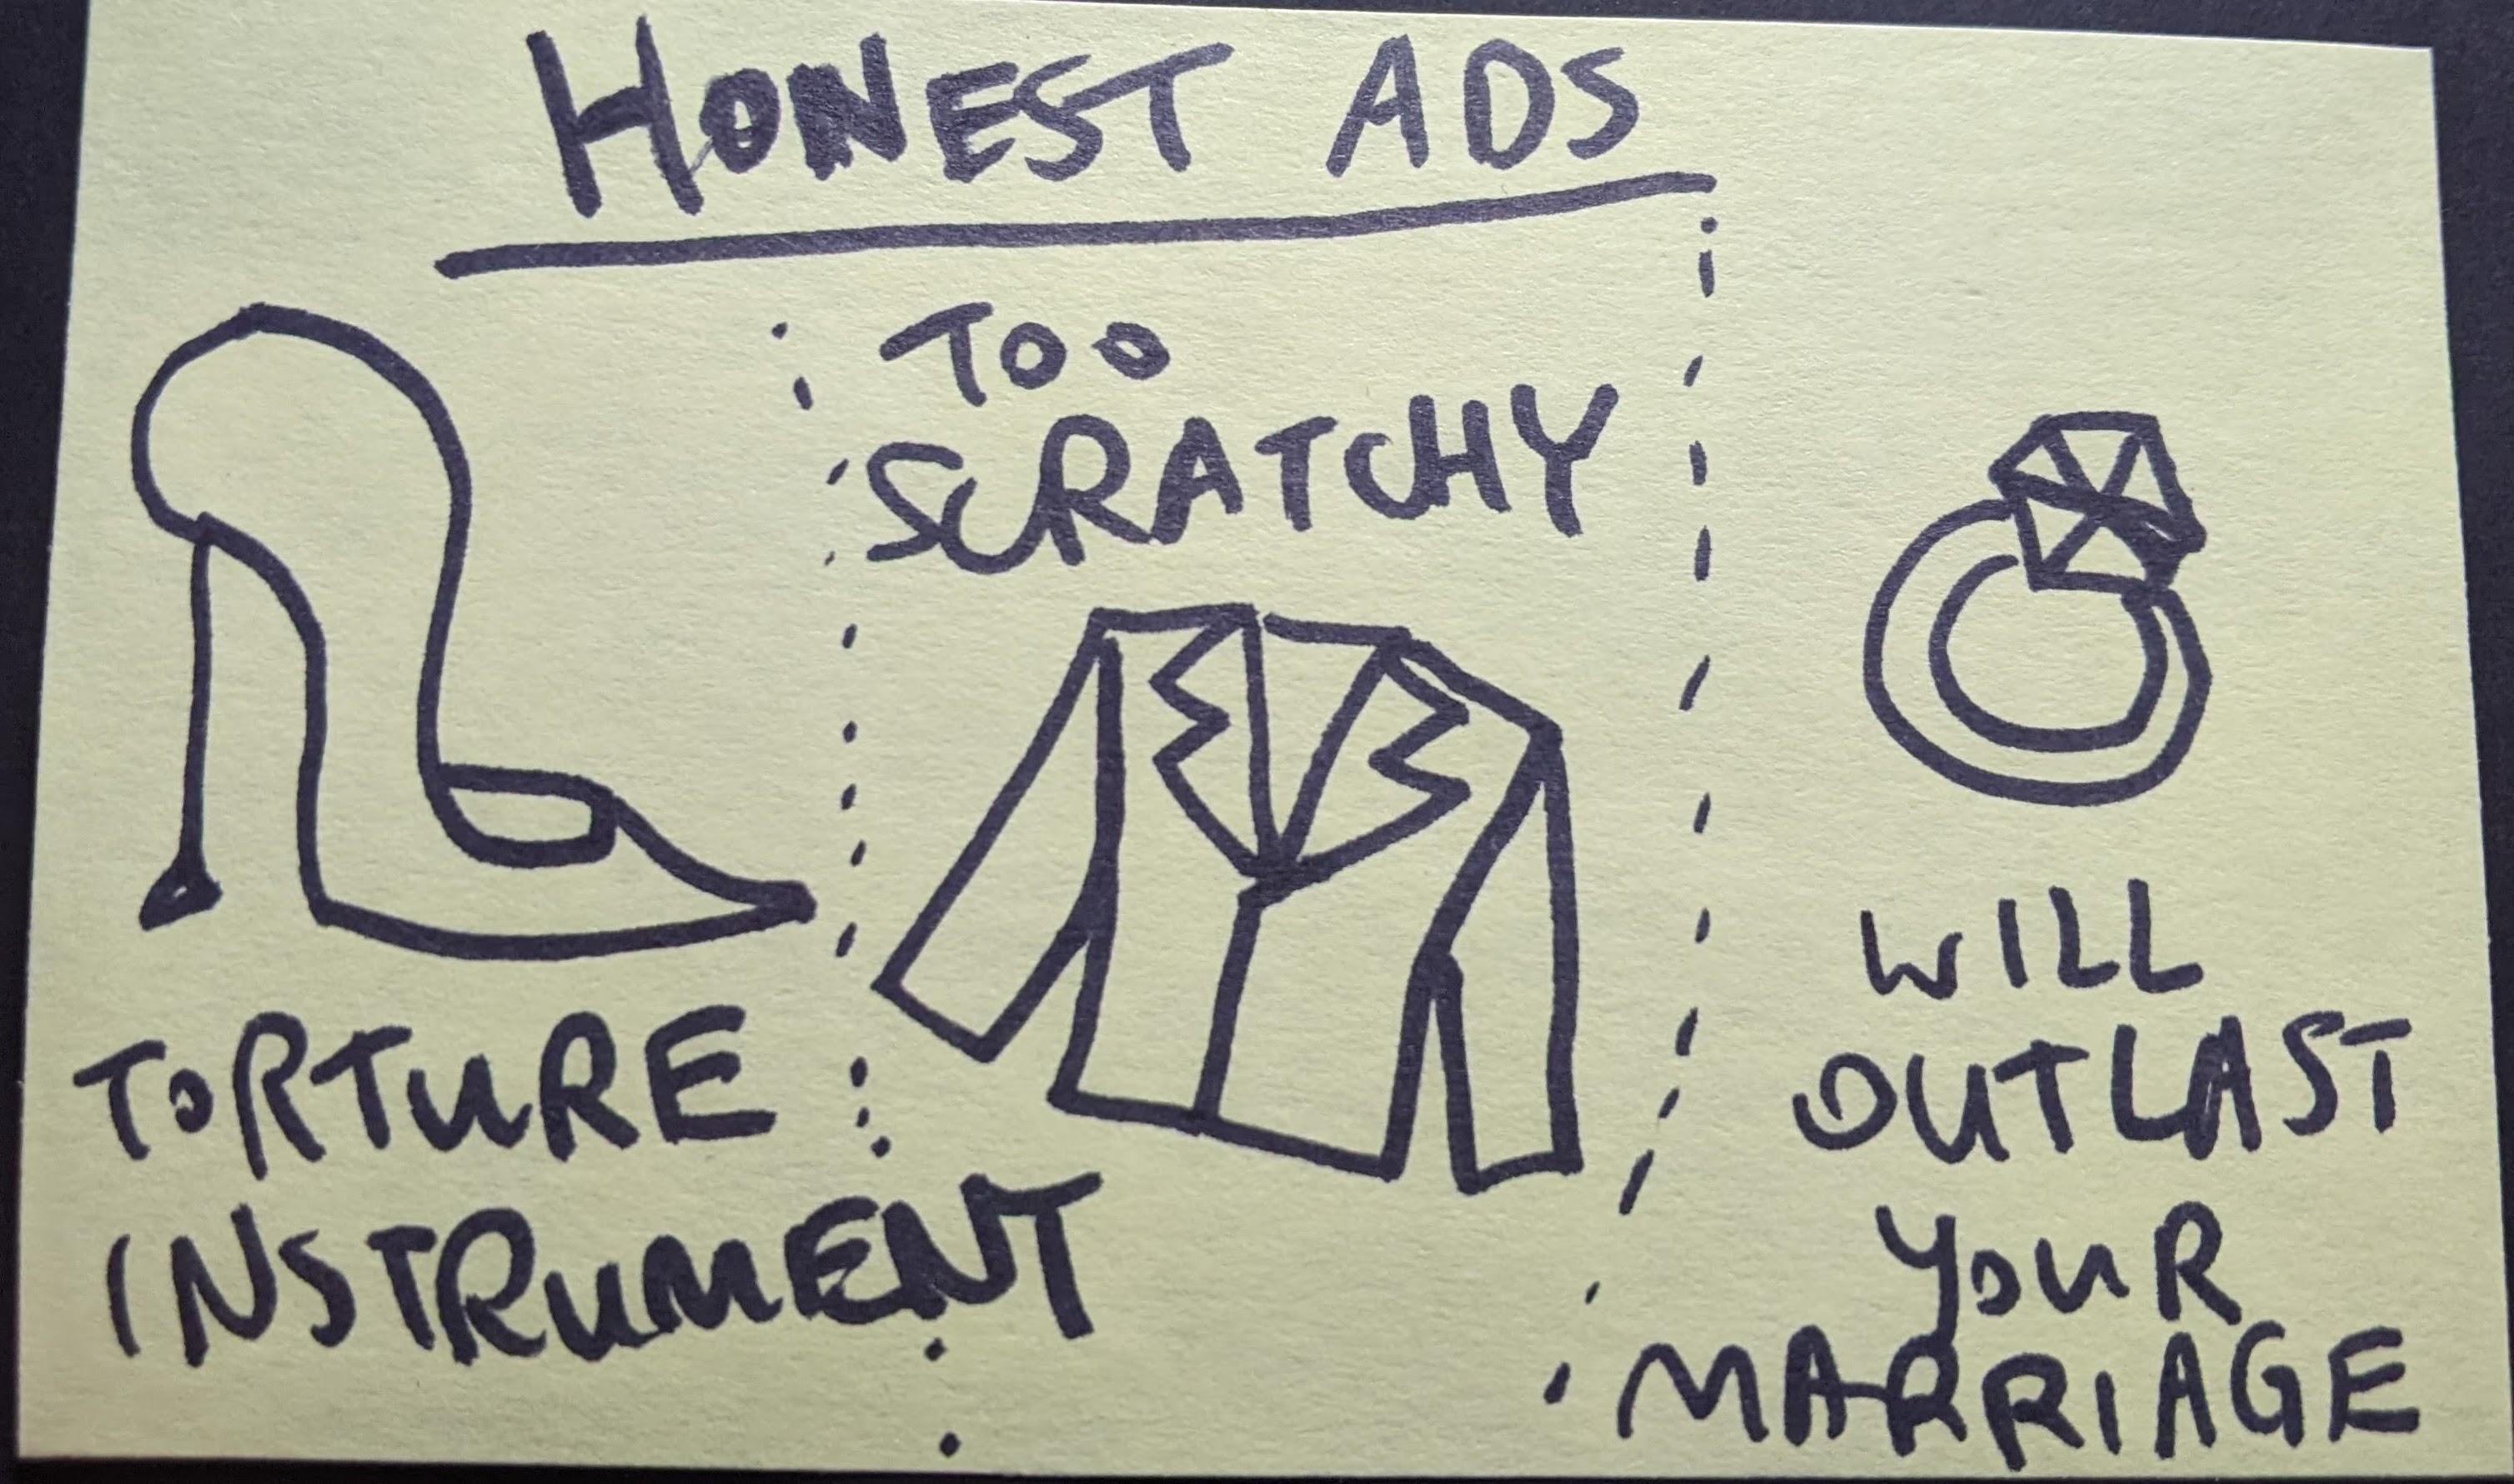 HONEST ADS
TORTURE
INSTRUMENT
TOO
SCRATCHY
WILL
OUTLAST
YOUR
MARRIAGE